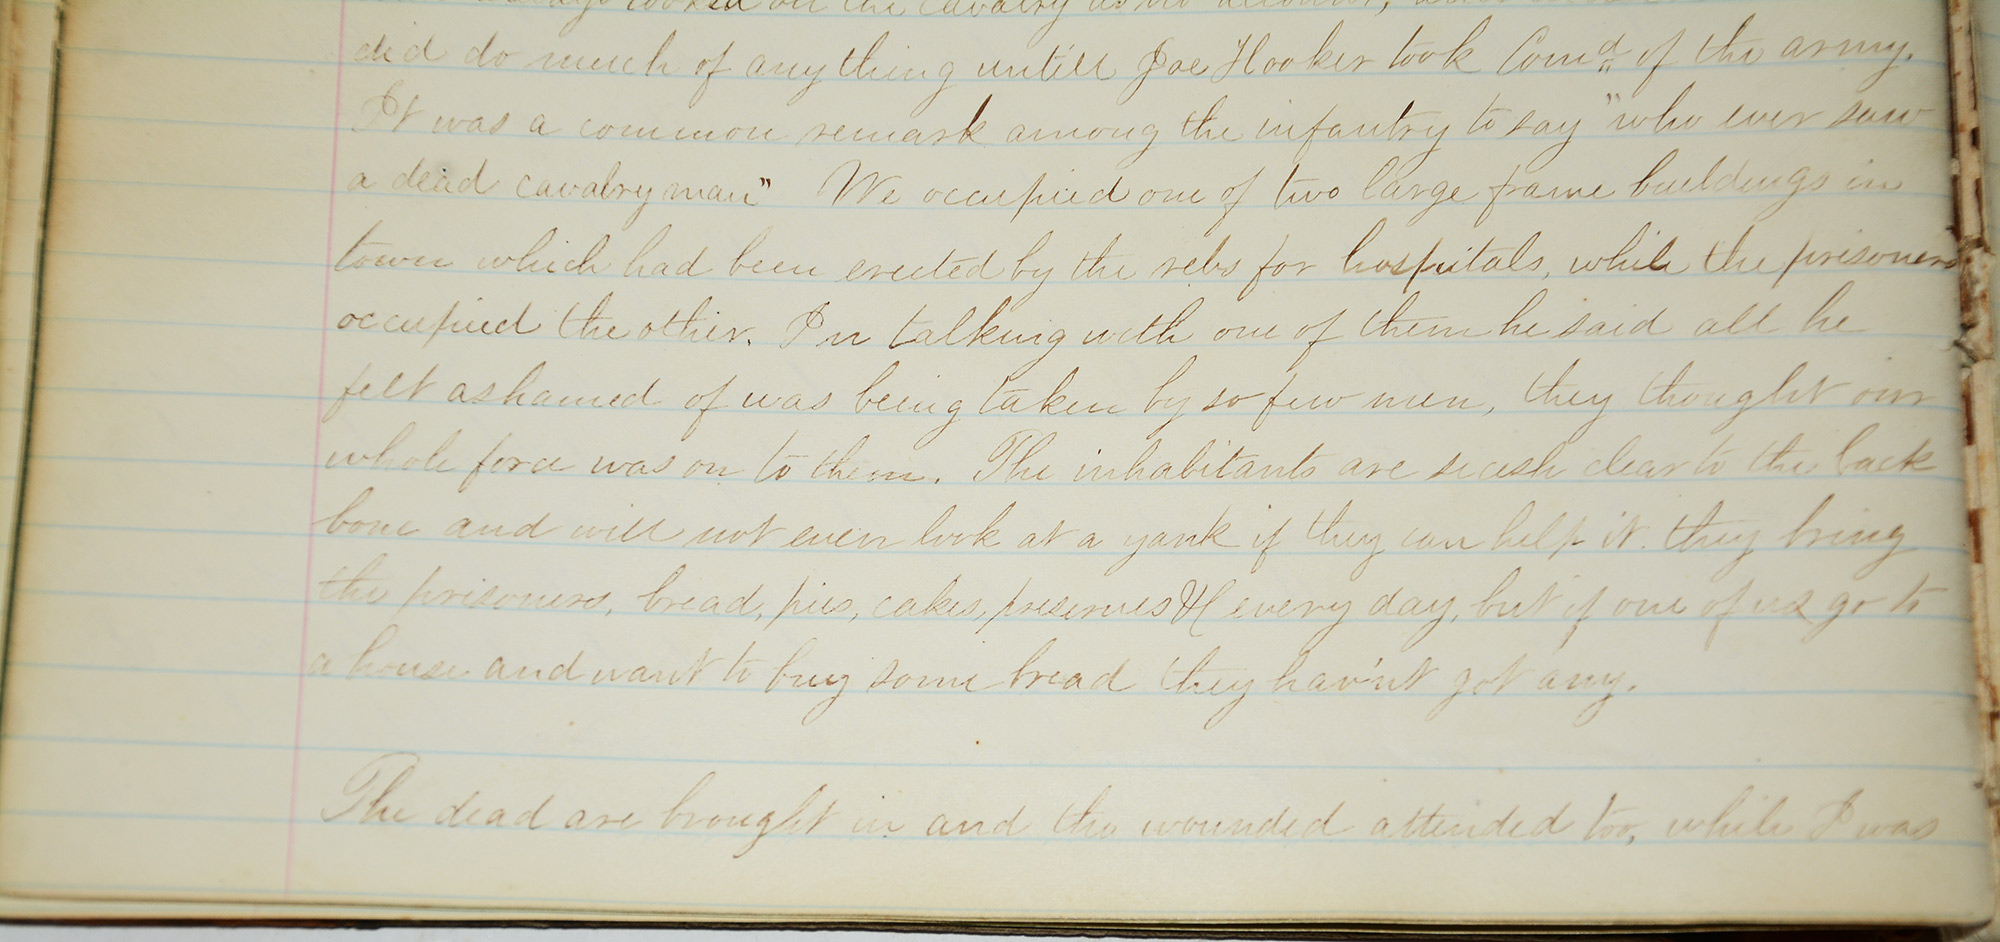 looked on the cavalry as no account,
did do much of any thing untill Joe Hooker took Comd of the army.
It was a common remark among the infantry to say "who ever saw
a dead cavalry man" We occupied one of two large frame buildings in
town which had been erected by the rebs for hospitals, while the prisoners
occupied the other. In talking with one of them he said all he
felt ashamed of was being taken by so few men, they thought our
whole force was on to them. The inhabitants are secesh clear to the back
bone and will not even look at a yank if they can help it. they bring
the prisoners, bread, pies, cakes, preserves &c every day, but if one of us go to
a house and want to buy some bread they hav'nt got any.
The dead are brought in and the wounded attended too, while I was